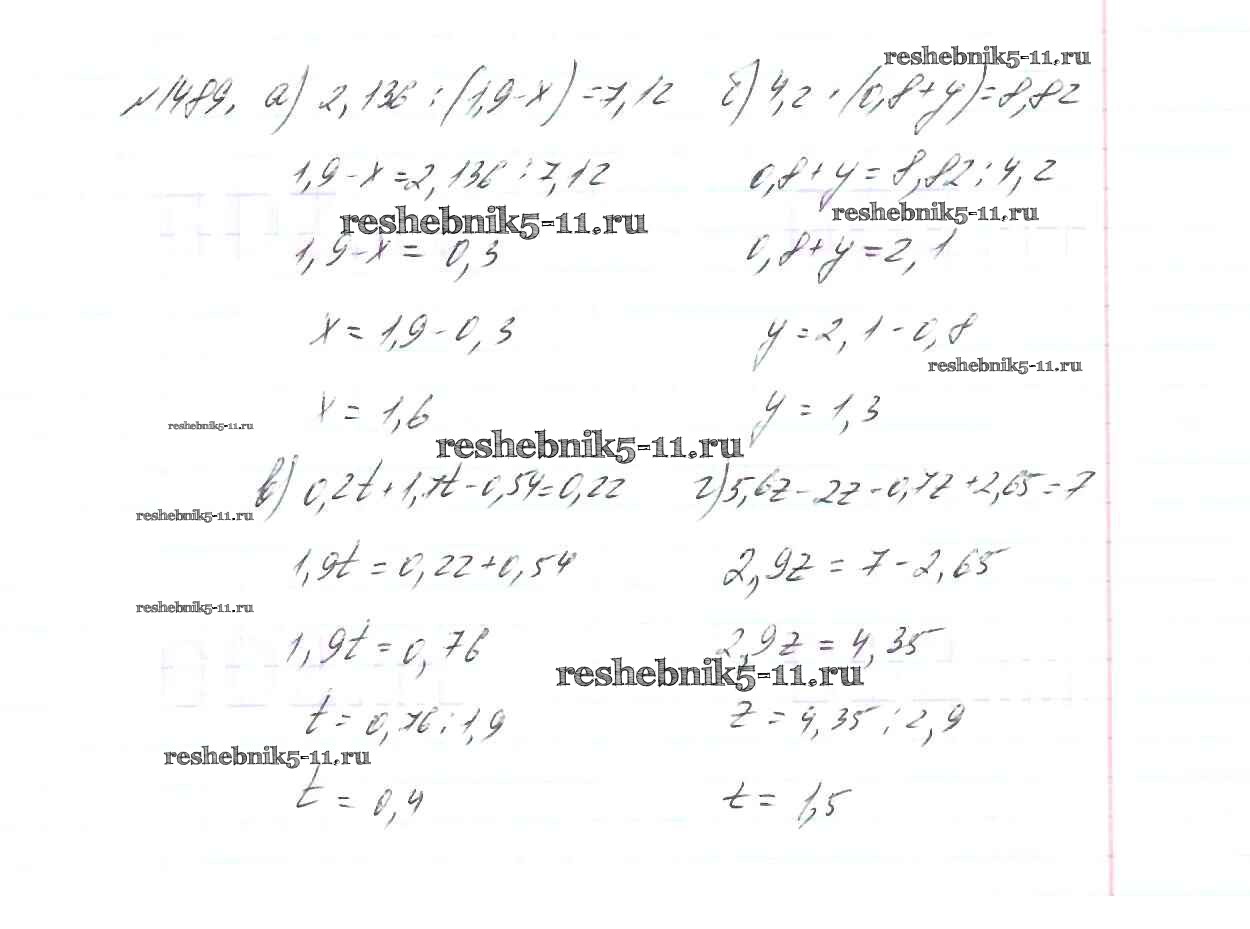 reshebnik5-11.ru
№1489. а) 2,136 : (1,9-x) = 7,12 б) 4,2 · (0,8+y) = 8,82
1,9-x = 2,136 : 7,12 0,8+y = 8,82 : 4,2
reshebnik5-11.ru reshebnik5-11.ru
1,9-x = 0,3 0,8+y = 2,1
x = 1,9-0,3 y = 2,1-0,8
reshebnik5-11.ru
x = 1,6 y = 1,3
reshebnik5-11.ru reshebnik5-11.ru
в) 0,2t+1,7t-0,54=0,22 г) 5,6z-2z-0,7z+2,65=7
reshebnik5-11.ru
1,9t = 0,22+0,54 2,9z = 7-2,65
reshebnik5-11.ru
1,9t = 0,76 2,9z = 4,35
reshebnik5-11.ru
t = 0,76 : 1,9 z = 4,35 : 2,9
reshebnik5-11.ru
t = 0,4 t = 1,5